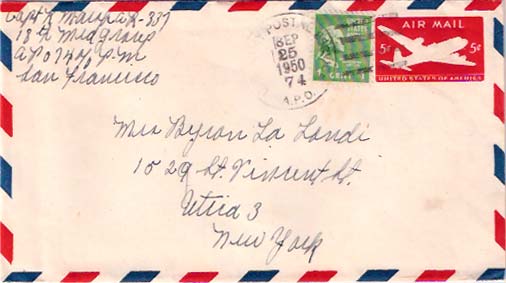 Capt K Marpak-337
18th Med Group
APO 747 % P.M
San Francisco
POST
SEP
25
1950
74
A.P.O.
UNITED STATES
1 CENT 1
AIR MAIL
5¢ 5¢
UNITED STATES OF AMERICA
Mrs Byron La Londi
1029 St. Vincent St.
Utica 3
New York